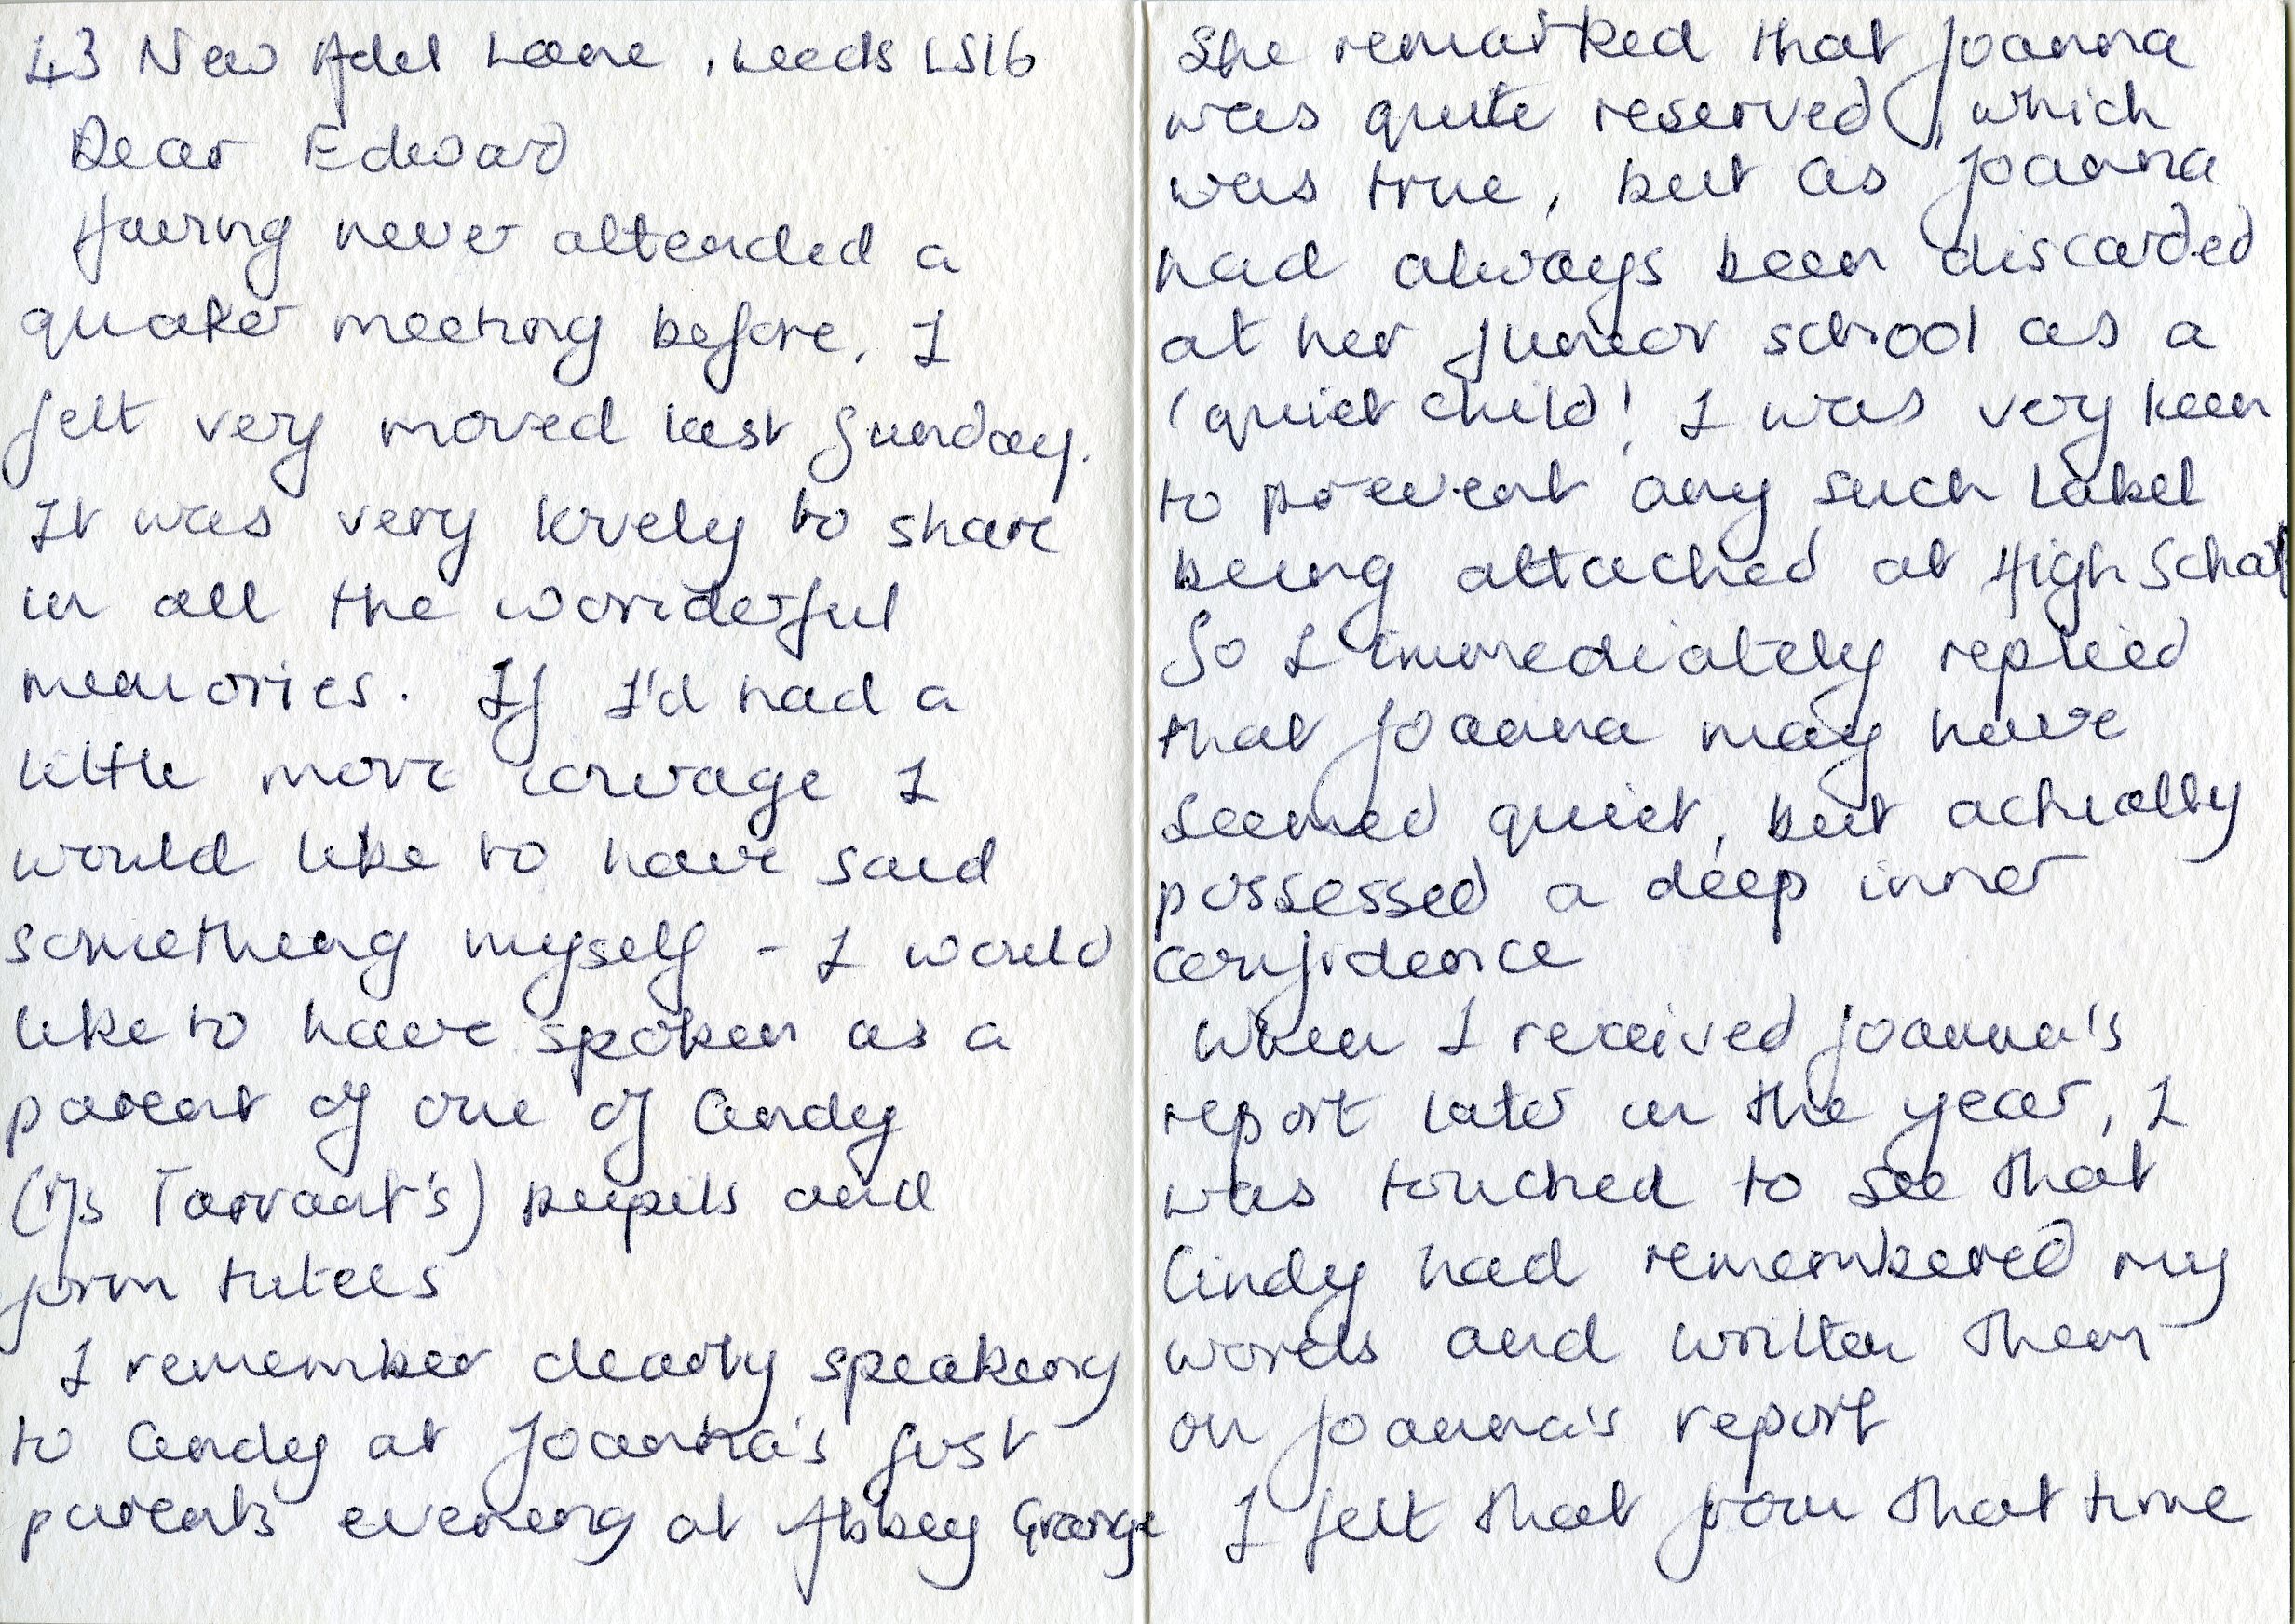 43 New Adel Lane, Leeds LS16
Dear Edward
Having never attended a
quaker meeting before, I
felt very moved last Sunday.
It was very lovely to share
in all the wonderful
memories. If I'd had a
little more courage I
would like to have said
something myself - I would
like to have spoken as a
parent of one of Cindy
(Ms Tarrant's) pupils and
form tutees
I remember clearly speaking
to Cindy at Joanna's first
parents evening at Abbey Grange
She remarked that Joanna
was quite reserved, which
was true, but as Joanna
had always been discarded
at her junior school as a
'quiet child', I was very keen
to prevent any such label
being attached at High School
So I immediately replied
that Joanna may have
seemed quiet, but actually
possessed a deep inner
confidence
When I received Joanna's
report later in the year, I
was touched to see that
Cindy had remembered my
words and written them
on Joanna's report
I felt that from that time